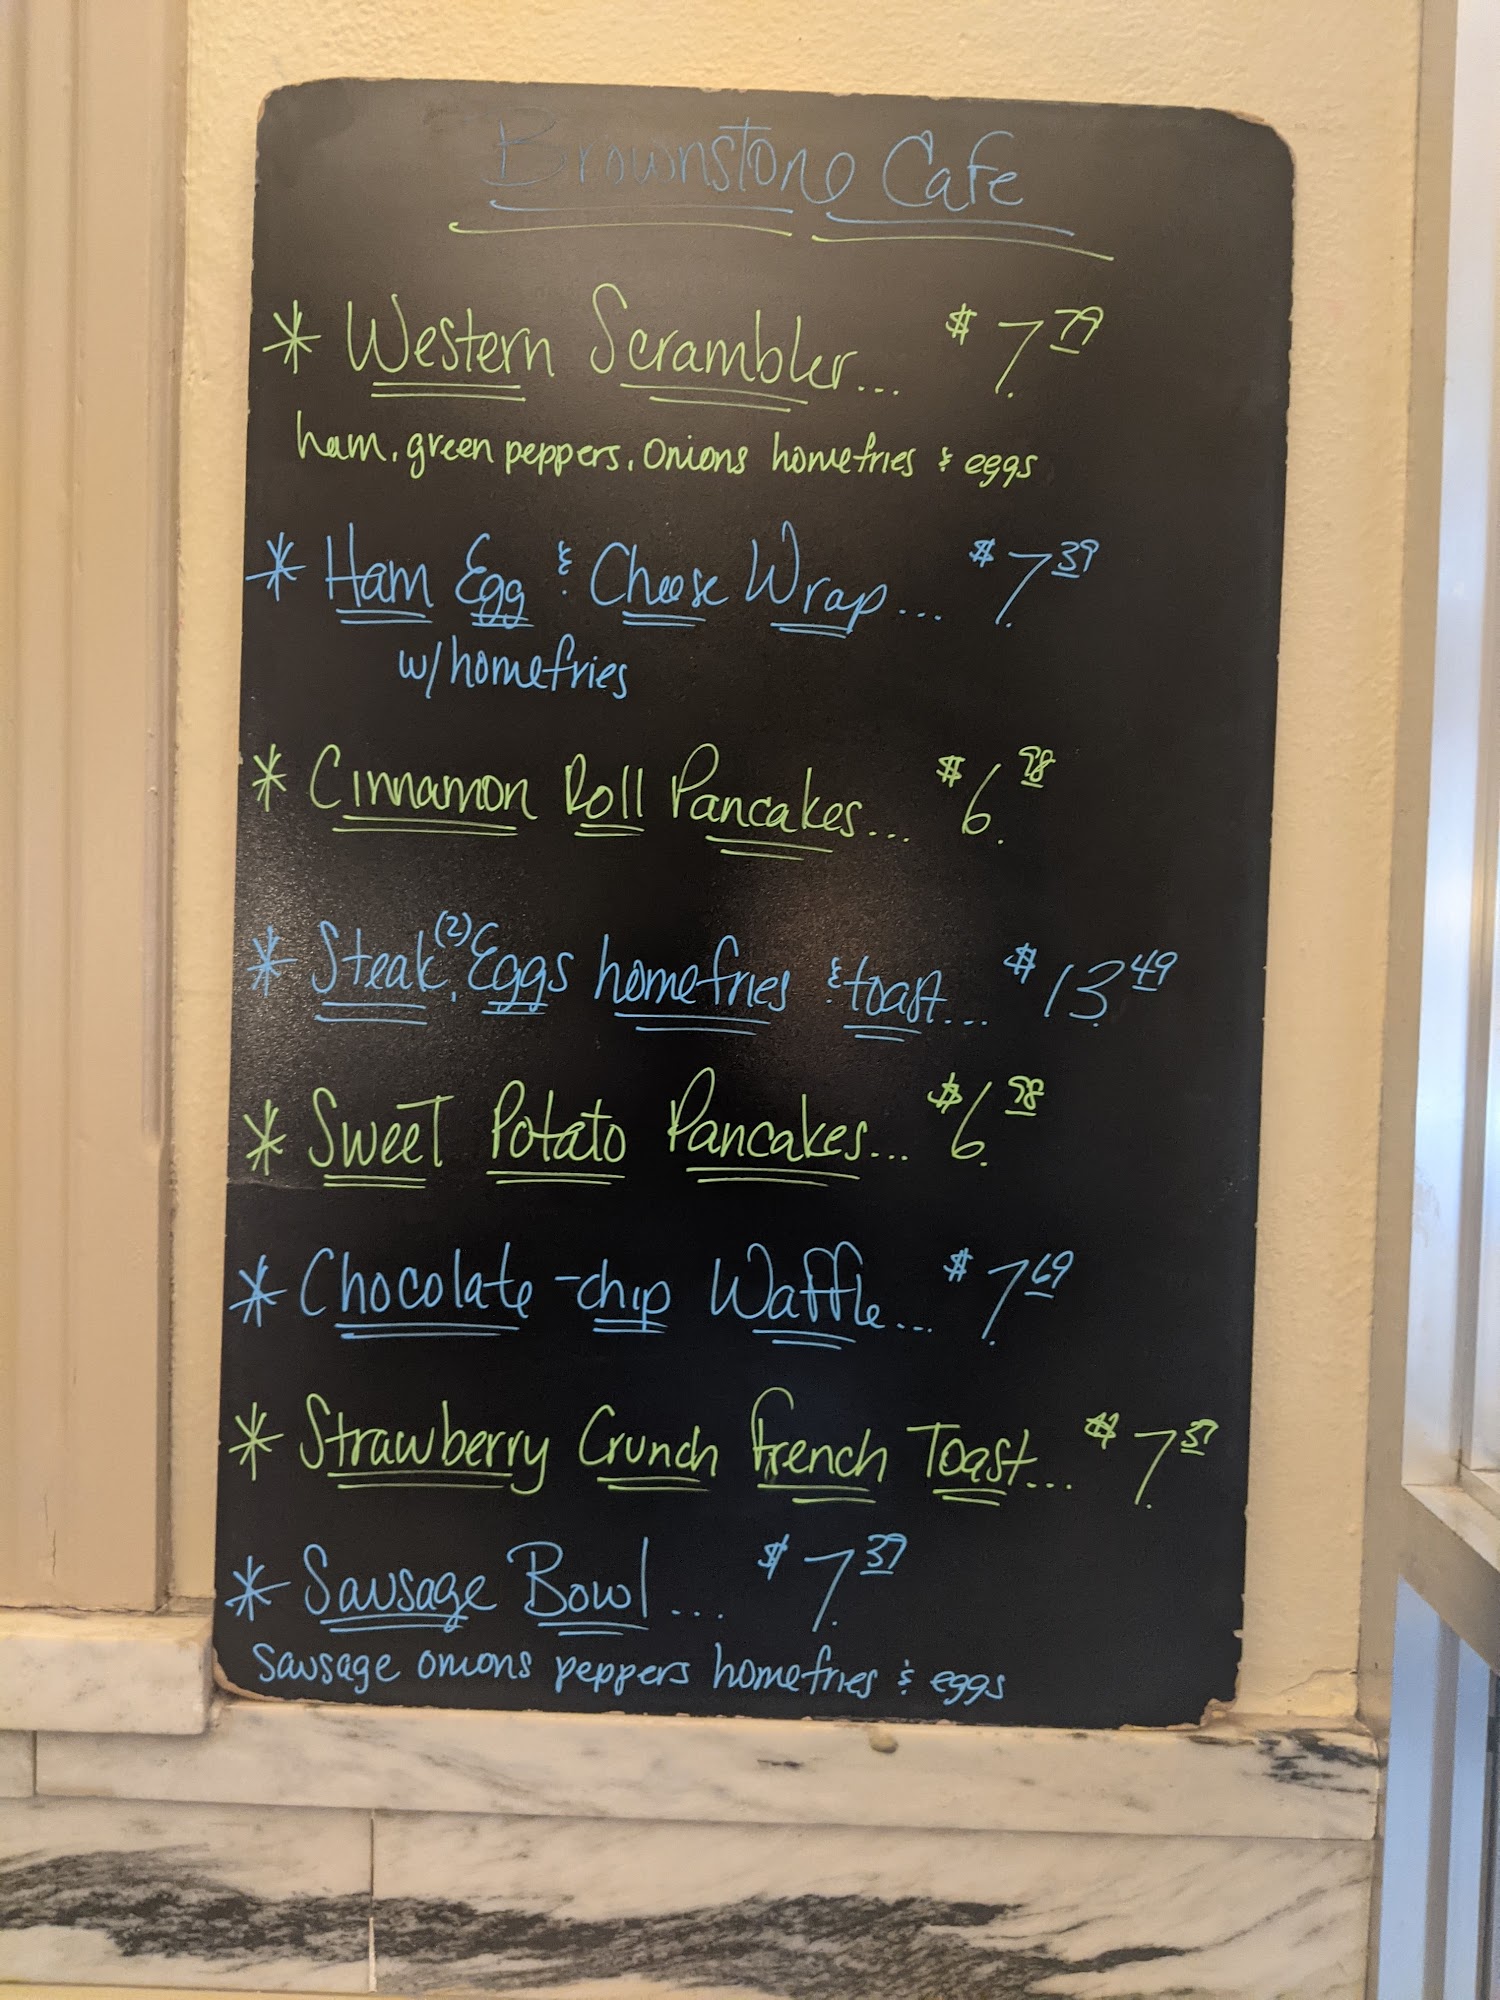 Brownstone Cafe
* Western Scrambler... $7.79
ham, green peppers, onions homefries & eggs
* Ham Egg & Cheese Wrap... $7.39
w/homefries
* Cinnamon Roll Pancakes... $6.98
* Steak, (2) Eggs homefries & toast... $13.49
* Sweet Potato Pancakes... $6.98
* Chocolate-chip Waffle... $7.69
* Strawberry Crunch French Toast... $7.37
* Sausage Bowl... $7.39
Sausage onions peppers homefries & eggs